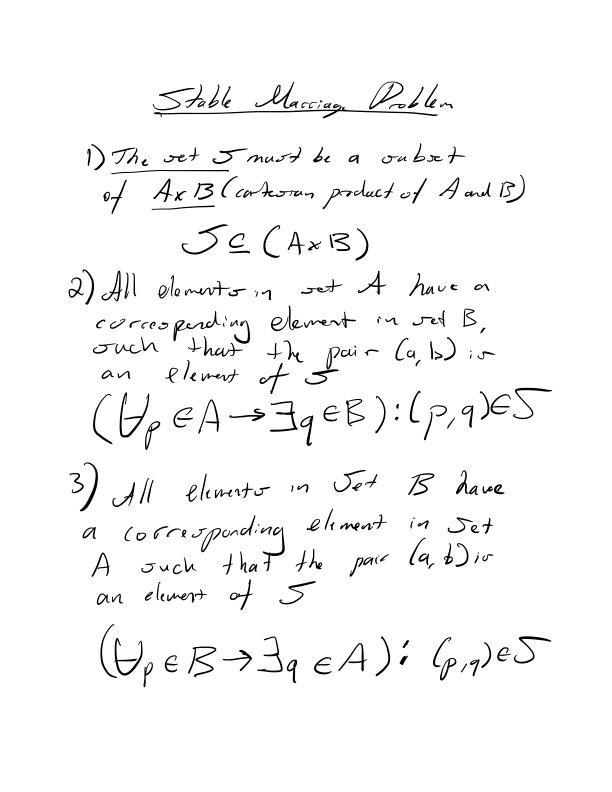 Stable Marriage Problem
1) The set S must be a subset
of A x B (cartesian product of A and B)
S ⊆ (A x B)
2) All elements in set A have a
corresponding element in set B,
such that the pair (a, b) is
an element of S
(∀p ∈ A → ∃q ∈ B) : (p, q) ∈ S
3) All elements in Set B have
a corresponding element in Set
A such that the pair (a, b) is
an element of S
(∀p ∈ B → ∃q ∈ A) : (p, q) ∈ S